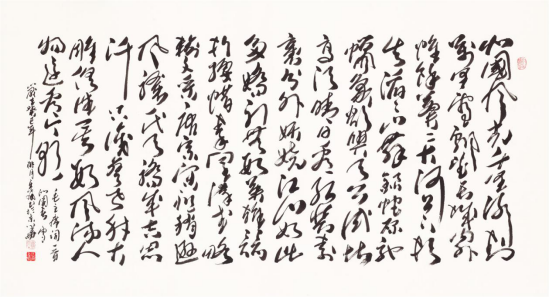 北國風光千里冰封
萬里雪飄望長城內外
惟餘莽莽大河上下頓
失滔滔山舞銀蛇原馳
蠟象欲與天公試比
高須晴日看紅裝素
裹分外妖嬈江山如此
多嬌引無數英雄競
折腰惜秦皇漢武略
輸文采唐宗宋祖稍遜
風騷一代天驕成吉思
汗只識彎弓射大
雕俱往矣數風流人
物還看今朝
毛主席詞一首
癸巳年